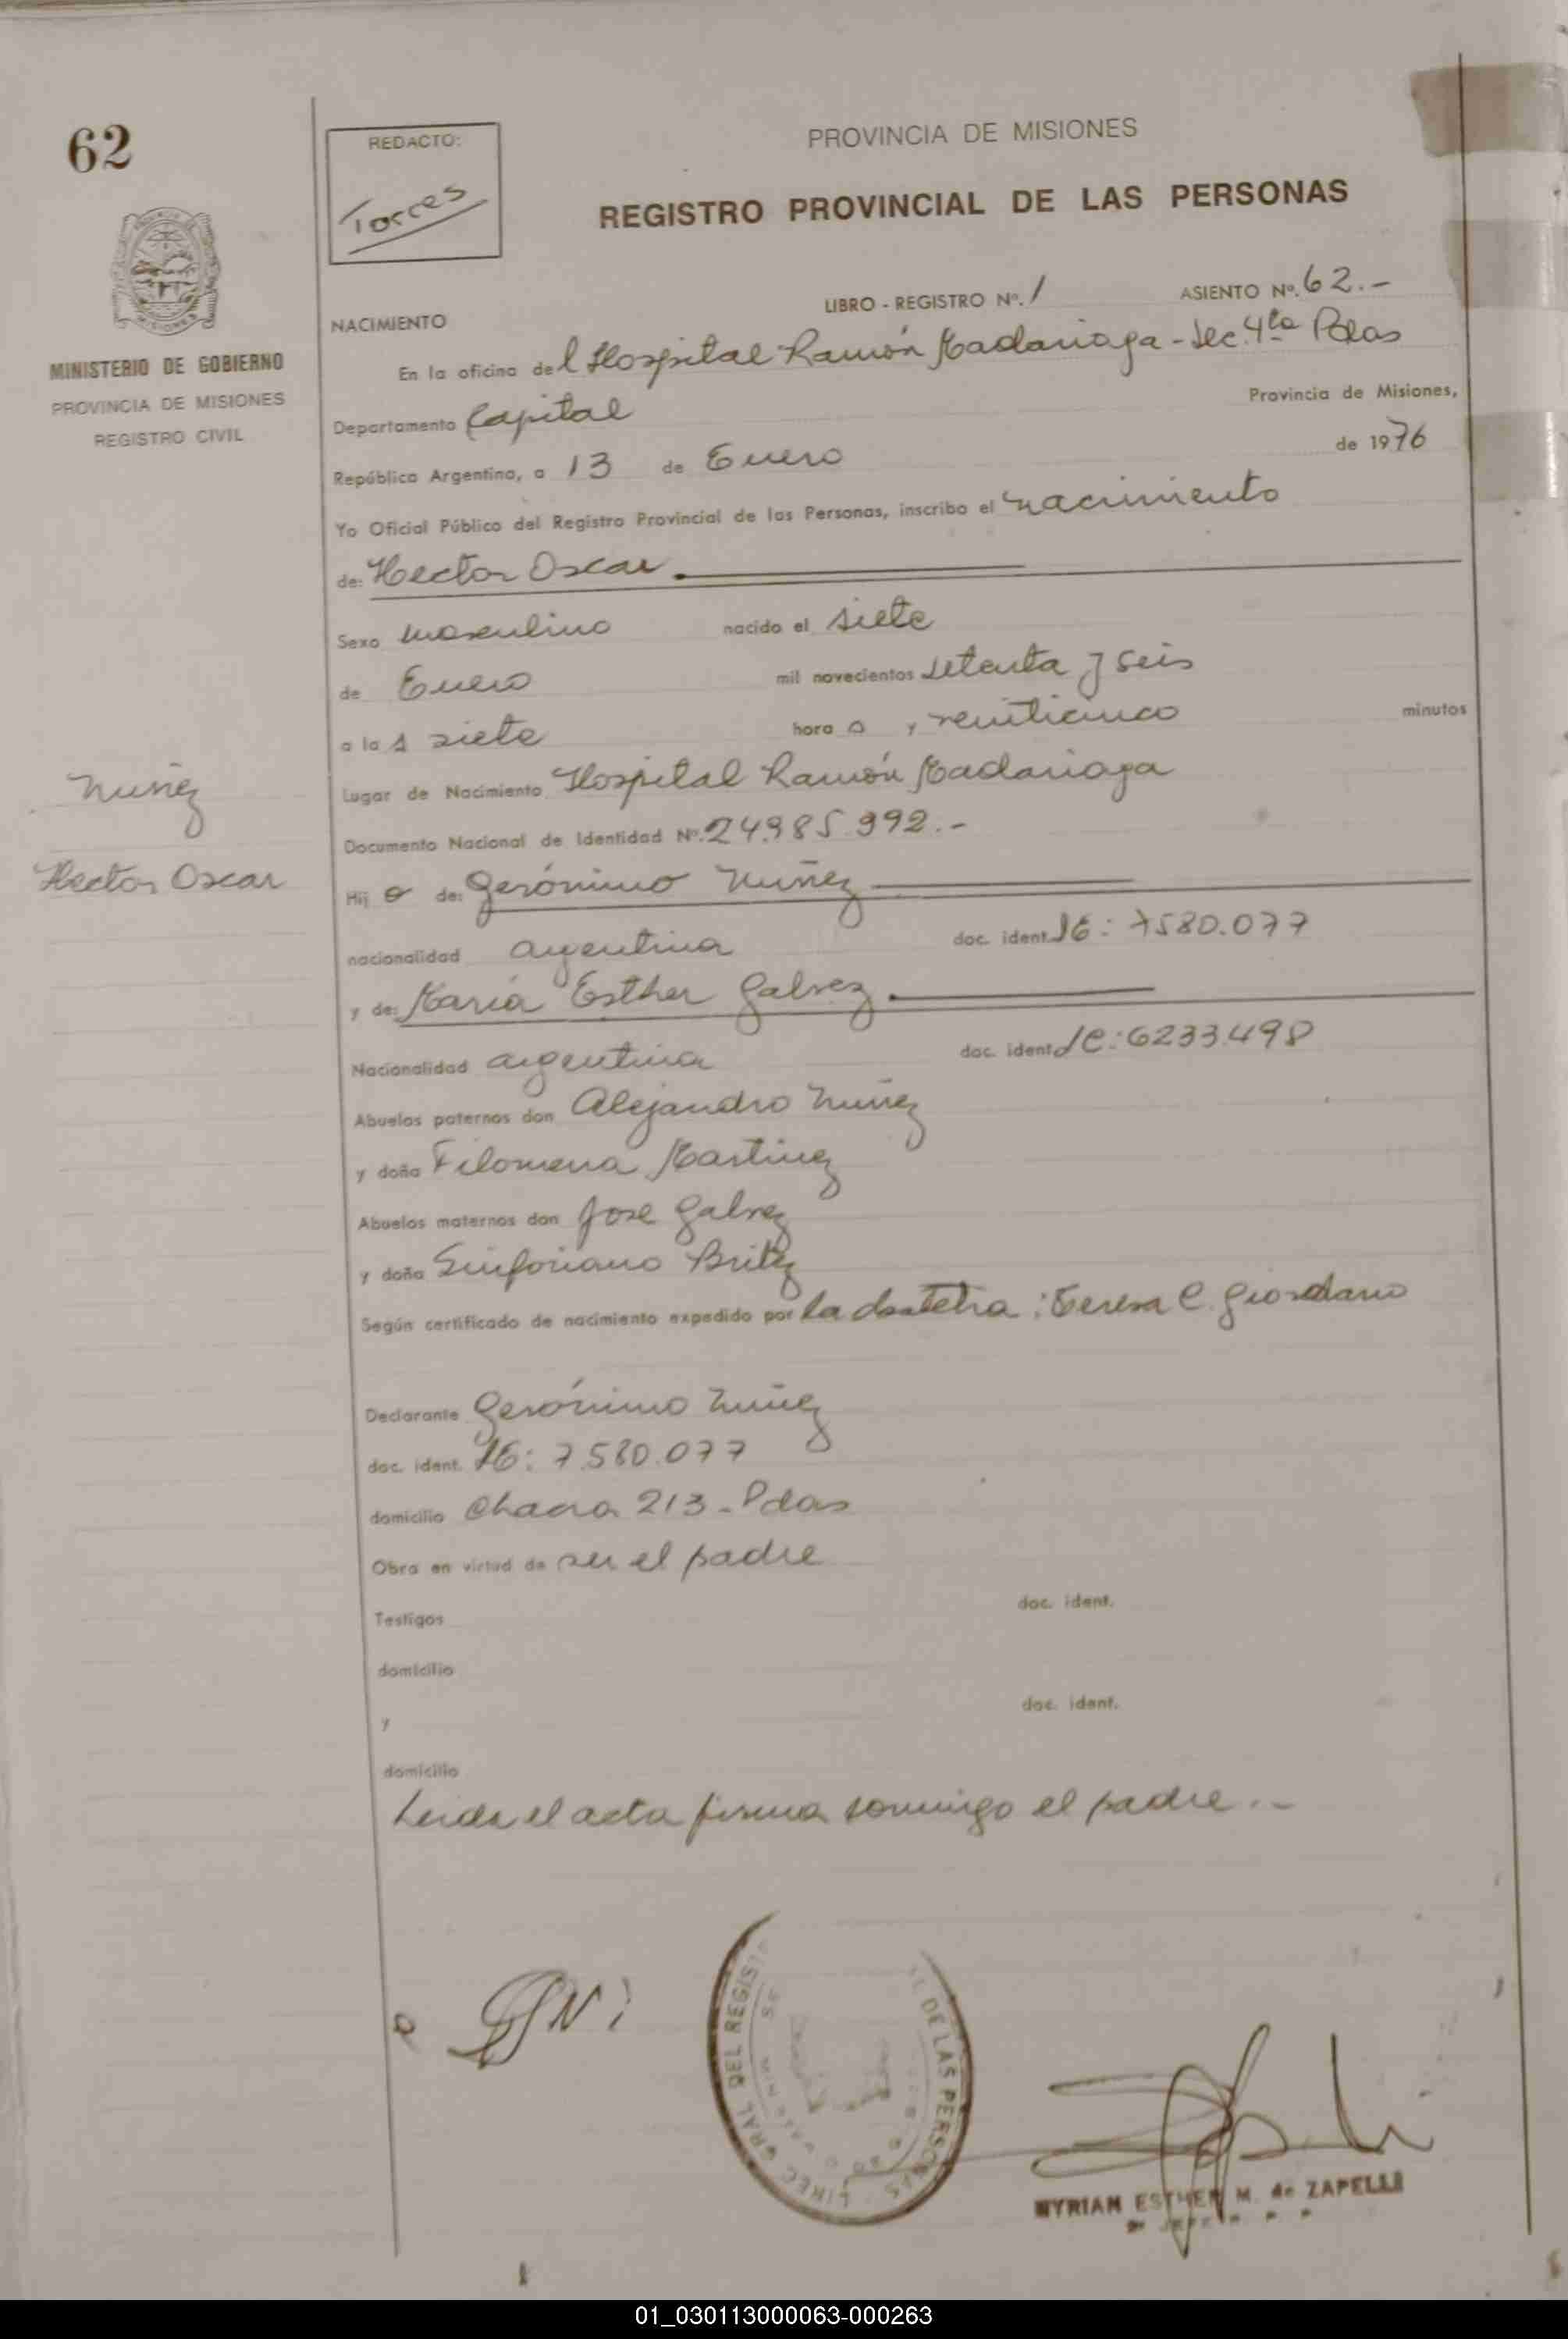 62
REDACTO:
Torres
PROVINCIA DE MISIONES
REGISTRO PROVINCIAL DE LAS PERSONAS
MISIONES
MINISTERIO DE GOBIERNO
PROVINCIA DE MISIONES
REGISTRO CIVIL
LIBRO - REGISTRO Nº. 1 ASIENTO Nº. 62.-
NACIMIENTO
En la oficina del Hospital Ramón Madariaga - Sec. 4ta Pdas
Departamento Capital Provincia de Misiones,
República Argentina, a 13 de Enero de 1976
Yo Oficial Público del Registro Provincial de las Personas, inscribo el nacimiento
de: Hector Oscar.
Sexo masculino nacido el siete
de Enero mil novecientos setenta y seis
a las siete hora s y veinticinco minutos
Lugar de Nacimiento Hospital Ramón Madariaga
Documento Nacional de Identidad Nº. 24.985.992.-
Nuñez
Hector Oscar
Hij o de: Gerónimo Nuñez
nacionalidad argentina doc. ident. LE: 7580.077
y de: María Esther Galvez.
Nacionalidad argentina doc. ident. LC: 6233.498
Abuelos paternos don Alejandro Nuñez
y doña Filomena Martinez
Abuelos maternos don Jose Galvez
y doña Sinforiana Britez
Según certificado de nacimiento expedido por la obstetra: Teresa C. Giordano
Declarante Gerónimo Nuñez
doc. ident. LE: 7.580.077
domicilio Chacra 213 - Pdas
Obra en virtud de ser el padre
Testigos doc. ident.
domicilio
y doc. ident.
domicilio
Leida el acta firma conmigo el padre.-
DIREC GRAL DEL REGIST DE LAS PERSONAS
MYRIAM ESTHER M. de ZAPELLI
01_030113000063-000263